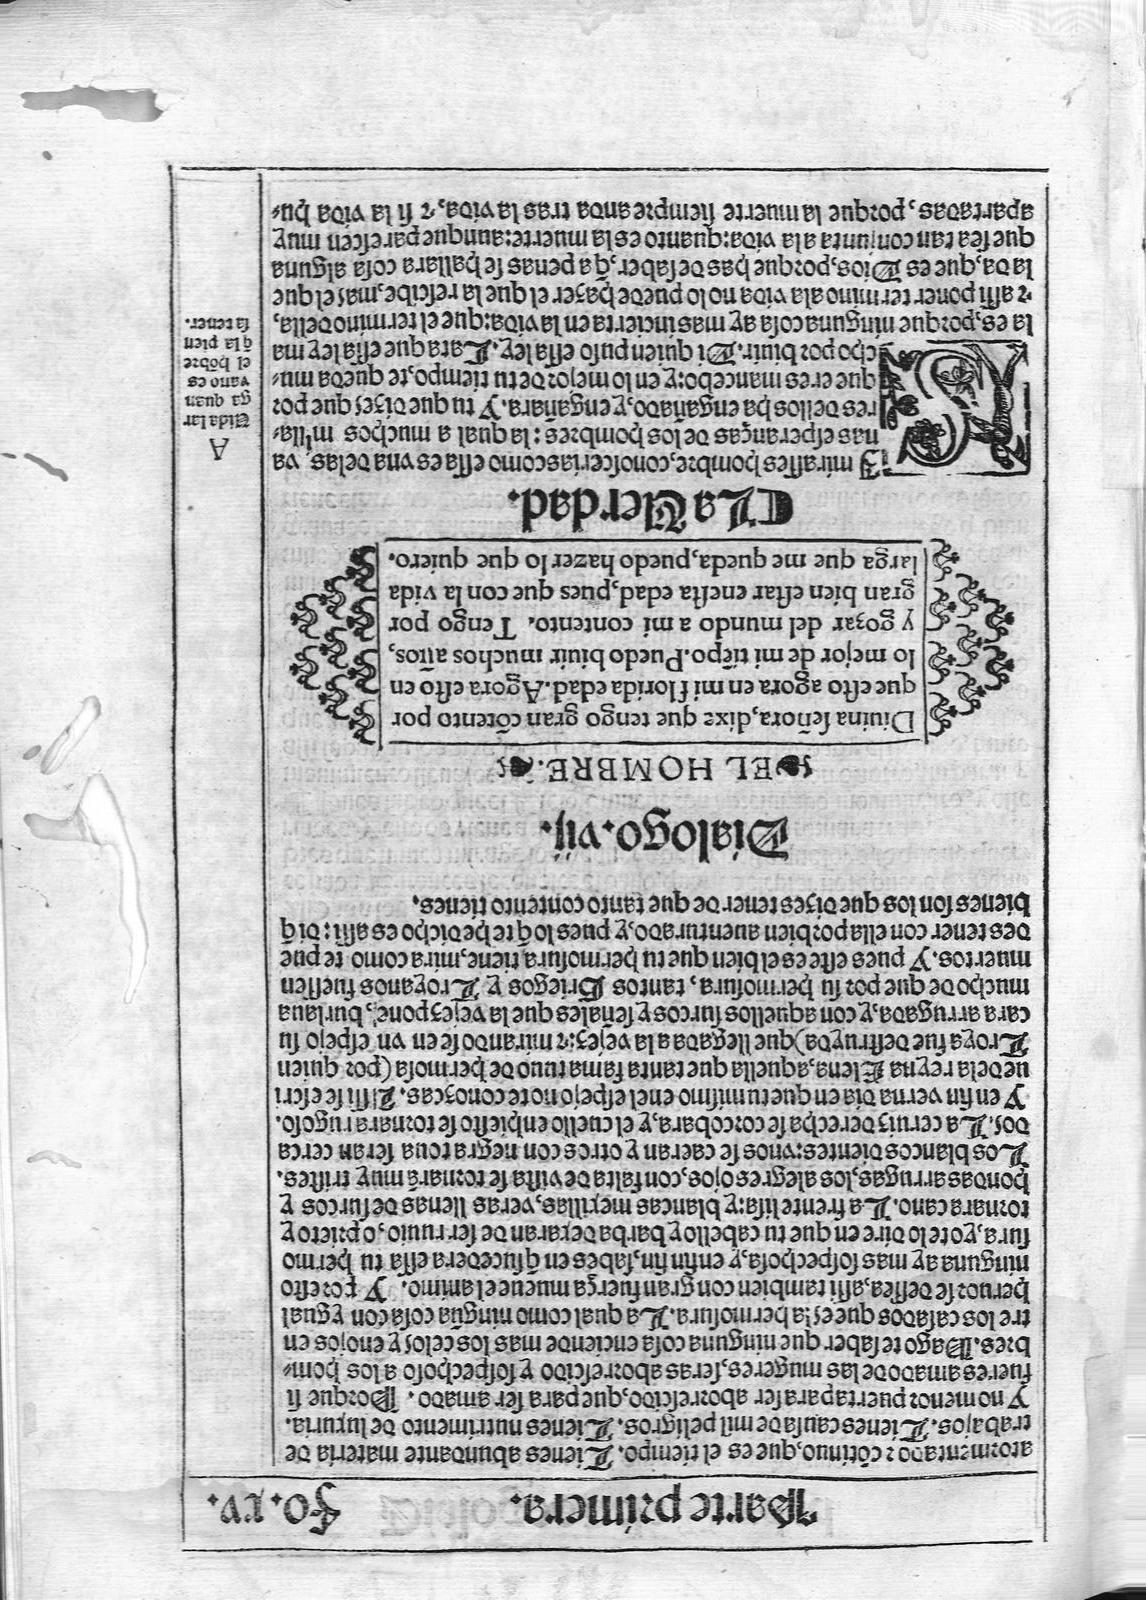 Parte primera. Fo. xv.
atormentador cõtinuo, que es el tiempo. Tienes abundante materia de
trabajos. Tienes causa de mil peligros. Tienes nutrimento de luxuria.
Y no menor puerta para ser aborrescido, que para ser amado. Porque si
fueres amado de las mugeres, seras aborrescido y sospechoso a los hom-
bres. Hago te saber que ninguna cosa enciende mas los celos y enojos en
tre los casados que es la hermosura. La qual como ningũa cosa con ygual
heruor se dessea, assi tambien con gran fuerça mueue el animo. Y por esto
ninguna ay mas sospechosa, y en fin fin, sabes en q̃ sucedera essa tu hermo
sura, yo te lo dire en que tu cabello y barba dexaran de ser ruuio, o prieto y
tornara cano. La frente lisa: y blancas mexillas, veras llenas de surcos y
hondas arrugas, los alegres ojos, con falta de vista se tornarã muy tristes.
Los blancos dientes: vnos se caeran y otros con negra toua seran cerca
dos. La ceruiz derecha se corcobara, y el cuello enhiesto se tornara rugoso.
Y en fin verna dia en que tu mismo en el espejo no te conozcas. Assi se escri
ue de la reyna Elena, aquella que tanta fama tuuo de hermosa (por quien
Troya fue destruyda) que llegada a la vejez: z mirando se en vn espejo su
cara arrugada, y con aquellos surcos y señales que la vejez pone, burlaua
mucho de que por su hermosura, tantos Griegos y Troyanos fuessen
muertos. Y pues este es el bien que tu hermosura tiene, mira como te pue
des tener con ella por bien auenturado, y pues lo q̃ te he dicho es assi: di q̃
bienes son los que dizes tener de que tanto contento tienes.
Dialogo. vij.
EL HOMBRE.
Diuina señora, dixe que tengo gran cõtento por
que esto agora en mi florida edad. Agora esto en
lo mejor de mi tiẽpo. Puedo biuir muchos años,
y gozar del mundo a mi contento. Tengo por
gran bien estar en esta edad, pues que con la vida
larga que me queda, puedo hazer lo que quiero.
La Verdad.
SI mirasses hombre, conoscerias como essa es vna de las va
nas esperanças de los hombres: la qual a muchos milla-
res dellos ha engañado, y engañara. Y tu que dizes que por
que eres mancebo: y en lo mejor de tu tiempo, te queda mu-
cho por biuir. Di quien puso essa ley. Cata que essa ley ma
la es, porque ninguna cosa ay mas incierta en la vida: que el termino della,
z assi poner termino a la vida no lo puede hazer el que la rescibe, mas el que
la da, que es Dios, porque has de saber, q̃ a penas se hallara cosa alguna
que sea tan conjunta a la vida: quanto es la muerte: aunque parescen muy
apartadas, porque la muerte siempre anda tras la vida, z si la vida hu-
A
Vida lar
ga quan
vano es
el hõbre
q̃ la pien
sa tener.